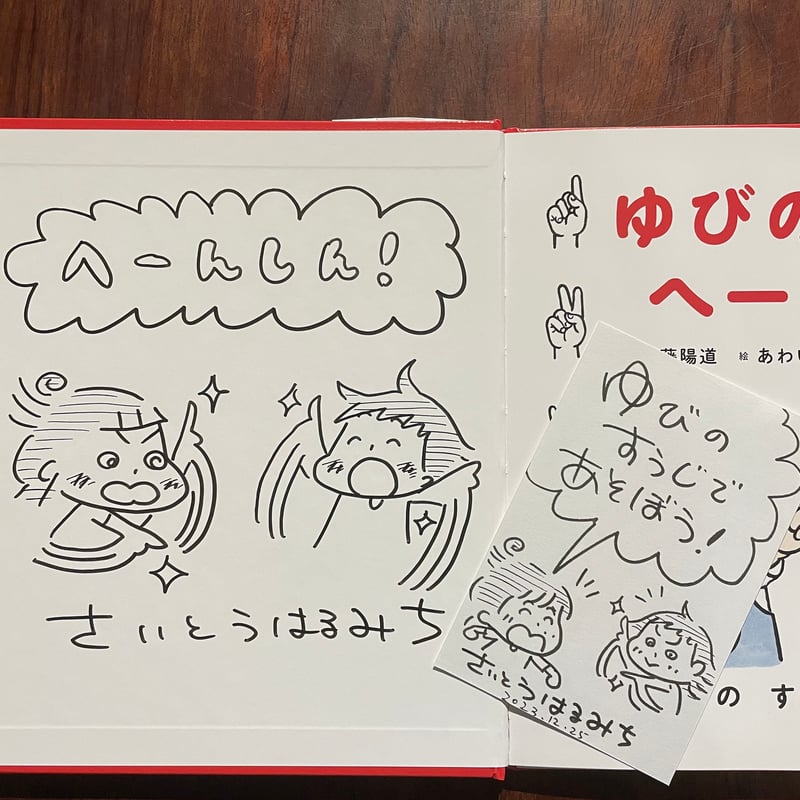 へーんしん!
さいとうはるみち
ゆびの
へー
陽道 絵 あわい
ゆびの
すうじで
あそぼう!
さいとうはるみち
2023.12.25
の す